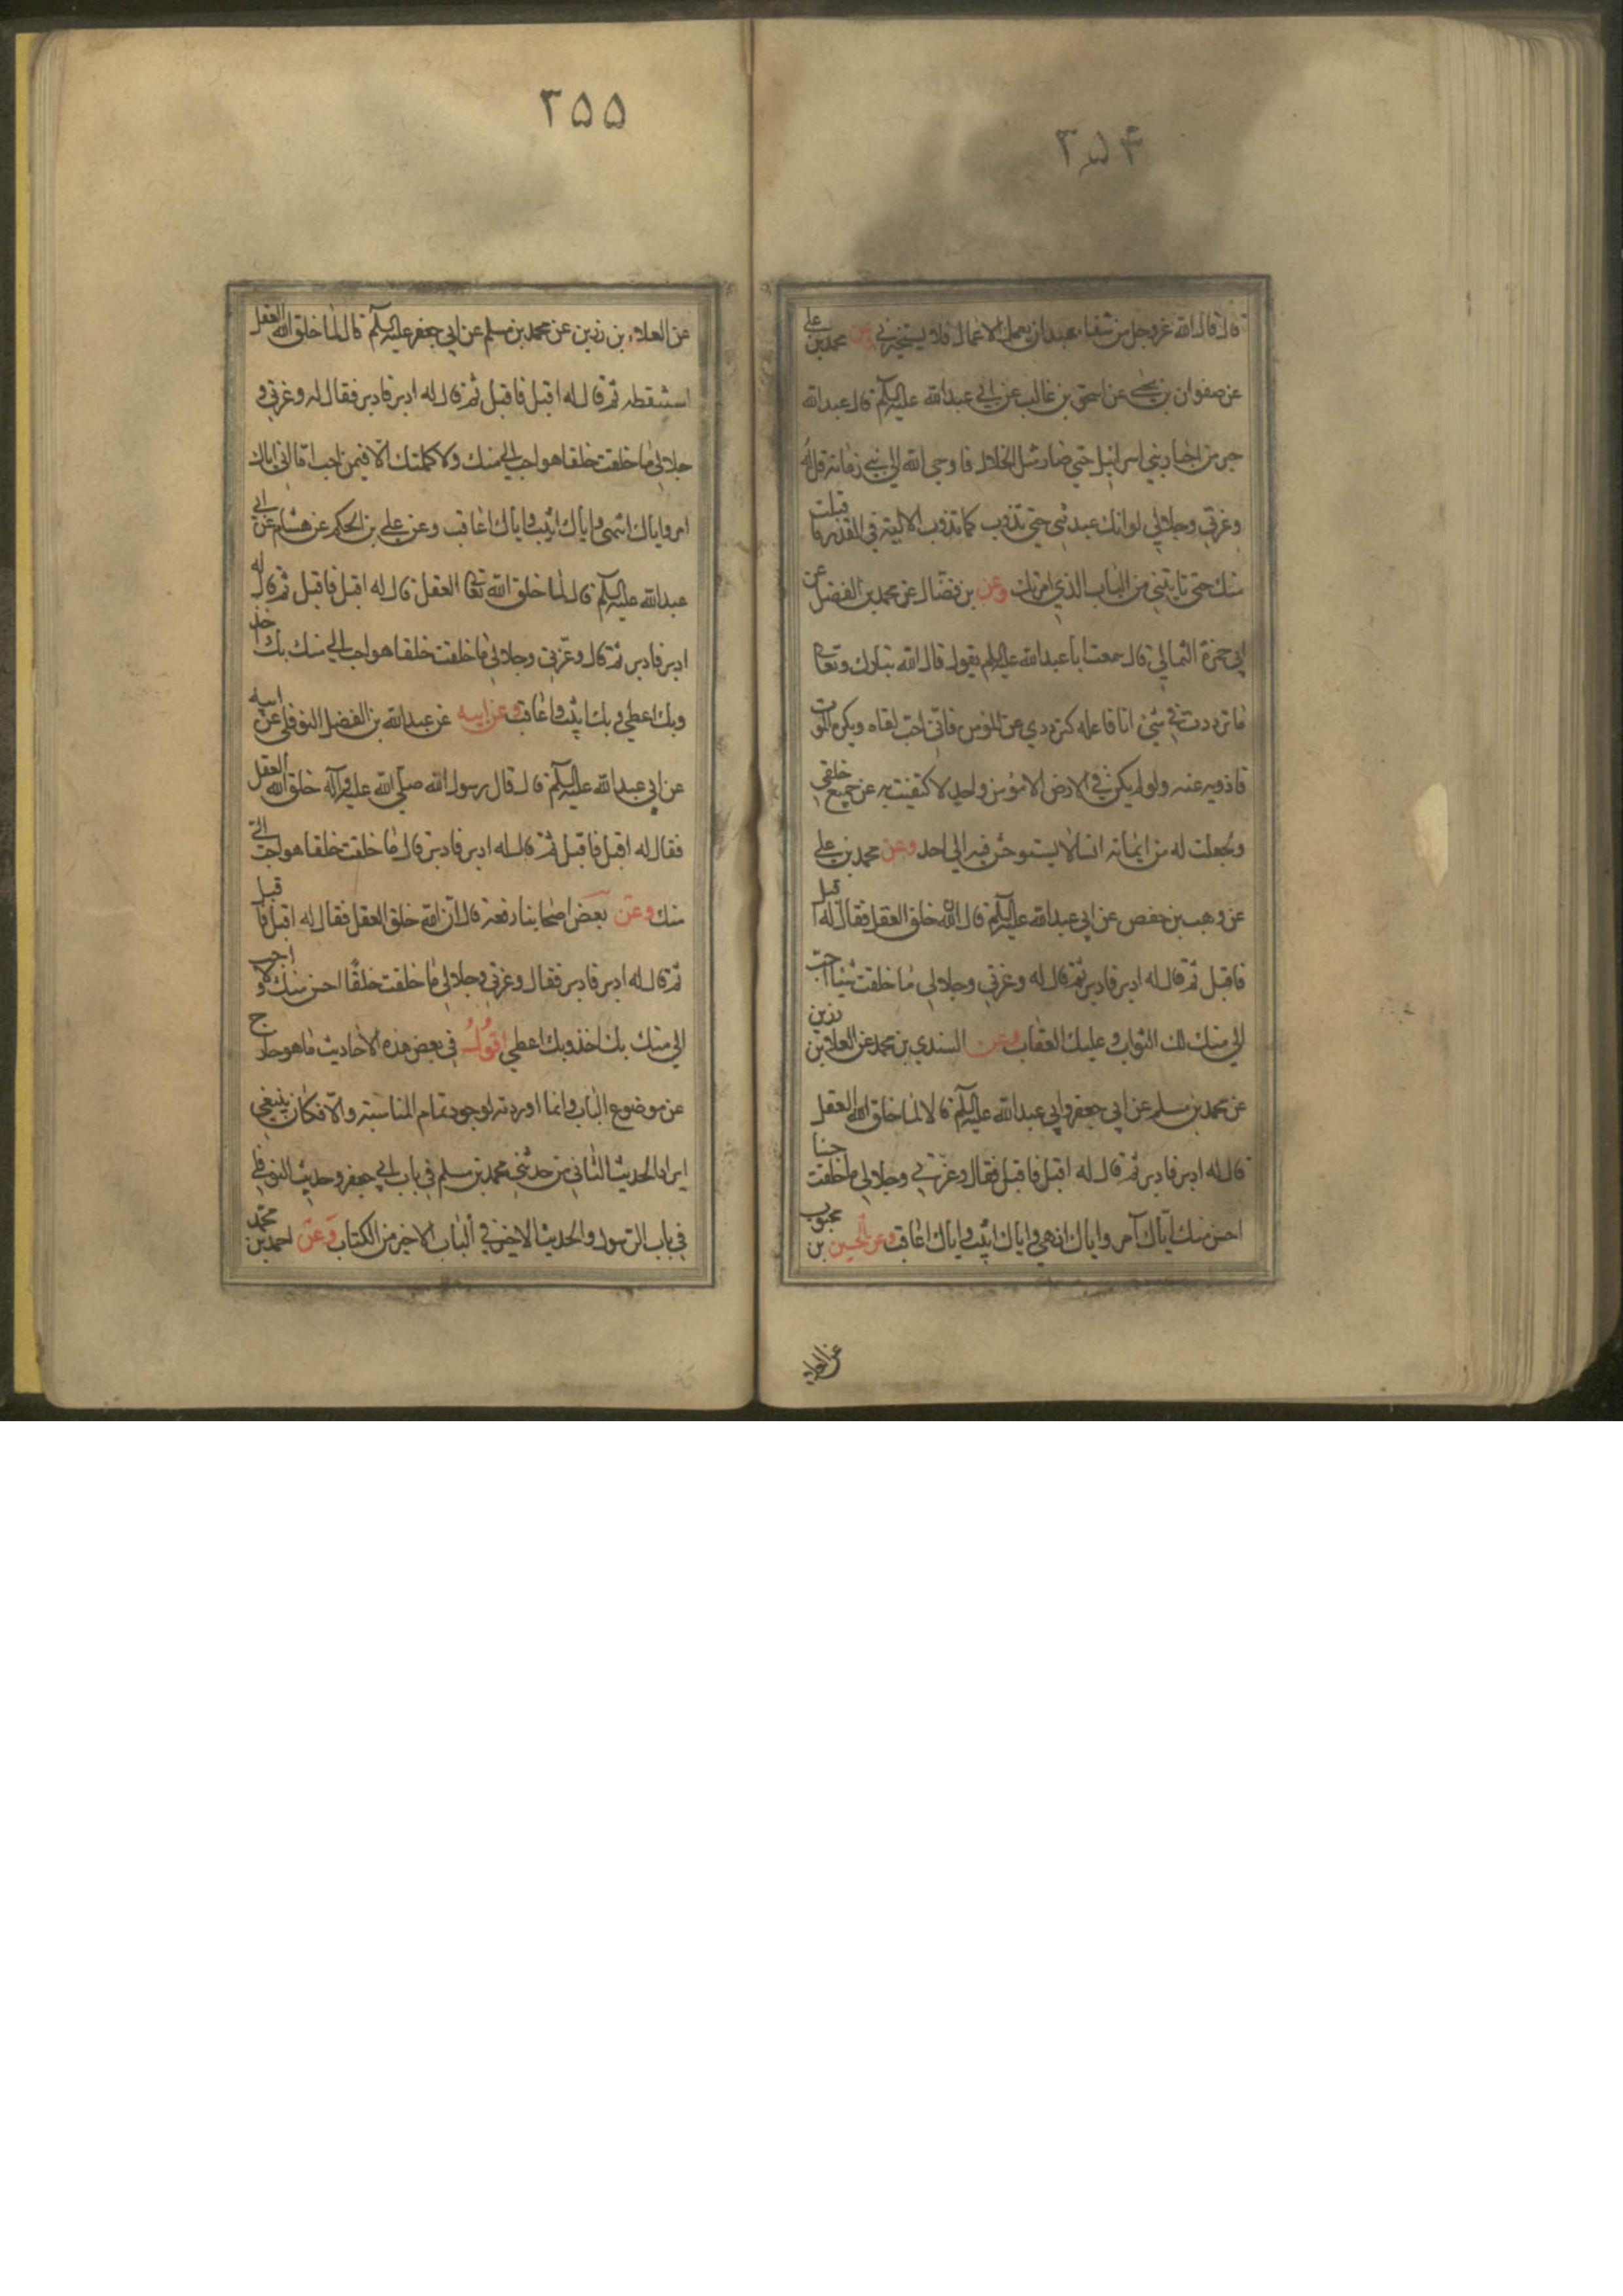 ۲۵۴
قال قال الله عزوجل من شقاء عبدي ان يعمل الاعمال فلا يستخيرني وعن محمد بن علي
عن صفوان بن يحيى عن اسحق بن غالب عن ابي عبدالله عليه السلم قال عبدالله
حبر من احبار بني اسرائيل حتى صار مثل الخلال فاوحى الله الى نبي زمانه قل له
وعزتي وجلالي لو انك عبدتني حتى تذوب كما تذوب الالية في القدر ما قبلت
منك حتى تاتيني من الباب الذي امرتك وعن بن فضال عن محمد بن الفضيل عن
ابي حمزة الثمالي قال سمعت ابا عبدالله عليه السلم يقول قال الله تبارك وتعالى
ما ترددت في شيء انا فاعله كترددي عن المؤمن فاني احب لقاه ويكره الموت
فاذويه عنه ولو لم يكن في الارض الا مؤمن واحد لاكتفيت به عن جميع خلقي
وجعلت له من ايمانه انسا لا يستوحش فيه الى احد وعن محمد بن علي
عن وهب بن حفص عن ابي عبدالله عليه السلم قال ان الله خلق العقل فقال له اقبل
فاقبل ثم قال له ادبر فادبر ثم قال له وعزتي وجلالي ما خلقت شيئا احب
الي منك لك الثواب وعليك العقاب وعن السندي بن محمد عن العلا بن رزين
عن محمد بن مسلم عن ابي جعفر وابي عبدالله عليه السلم قالا لما خلق الله العقل
قال له ادبر فادبر ثم قال له اقبل فاقبل فقال وعزتي وجلالي ما خلقت خلقا
احسن منك اياك آمر واياك انهى واياك اثيب واياك اعاقب وعن الحسين بن محبوب
عن العلا
۲۵۵
عن العلاء بن رزين عن محمد بن مسلم عن ابي جعفر عليه السلم قال لما خلق الله العقل
استنقطه ثم قال له اقبل فاقبل ثم قال له ادبر فادبر فقال له وعزتي و
جلالي ما خلقت خلقا هو احب الي منك ولا كملتك الا فيمن احب اما اني اياك
امر واياك انهى واياك اثيب واياك اعاقب وعن علي بن الحكم عن هشام عن ابي
عبدالله عليه السلم قال لما خلق الله تعالى العقل قال له اقبل فاقبل ثم قال له
ادبر فادبر ثم قال وعزتي وجلالي ما خلقت خلقا هو احب الي منك بك اخذ
وبك اعطي وبك اثيب واعاقب وعن ابيه عن عبدالله بن الفضل النوفلي عن ابيه
عن ابي عبدالله عليه السلم قال قال رسول الله صلى الله عليه وآله خلق الله العقل
فقال له اقبل فاقبل ثم قال له ادبر فادبر قال ما خلقت خلقا هو احب الي
منك وعن بعض اصحابنا رفعه قال ان الله خلق العقل فقال له اقبل فاقبل
ثم قال له ادبر فادبر فقال وعزتي وجلالي ما خلقت خلقا احسن منك ولا احب
الي منك بك اخذ وبك اعطي اقول في بعض هذه الاحاديث ما هو خارج
عن موضوع الباب وانما اوردته لوجود تمام المناسبة والا فكان ينبغي
ايراد الحديث الثاني من حديثي محمد بن مسلم في باب ابي جعفر وحديث النوفلي
في باب الرسول والحديث الاخير في الباب الاخير من الكتاب وعن احمد بن محمد